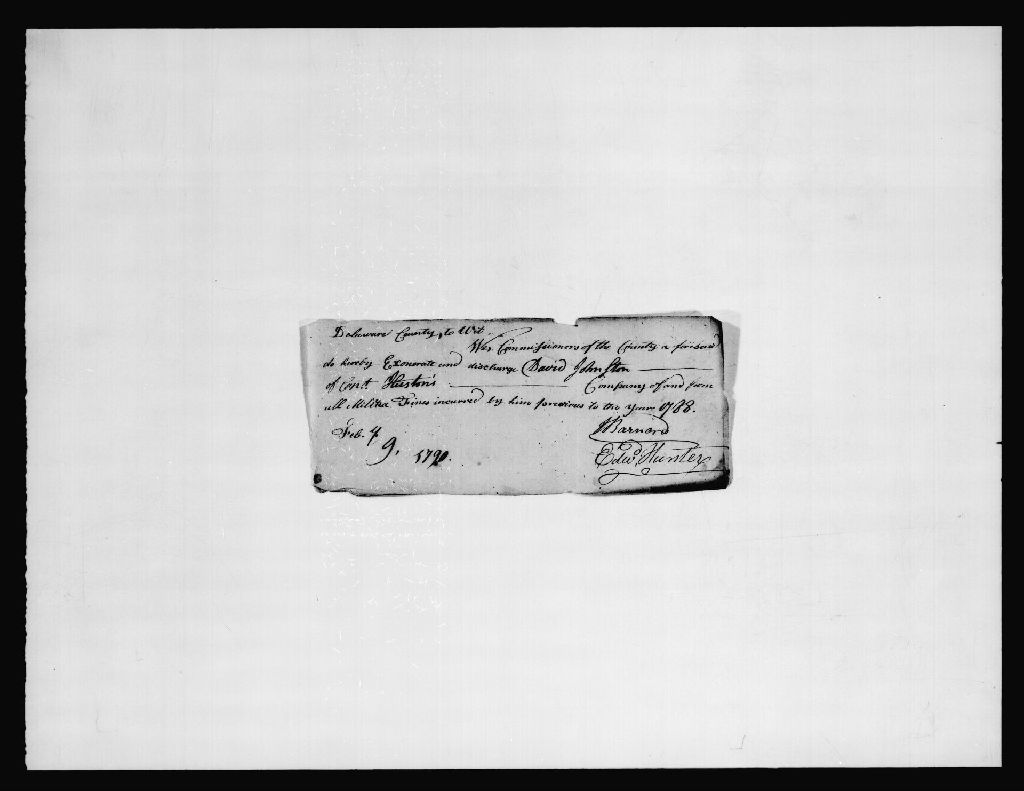 Delaware County to Wit
We Commissioners of the County a foresaid
do hereby Exonerate and discharge David Johnston
of Capt Huston's Company of and from
all Militia Fines incurred by him previous to the year 1788.
Feb. 9. 1790.
J Barnard
Edwd Hunter